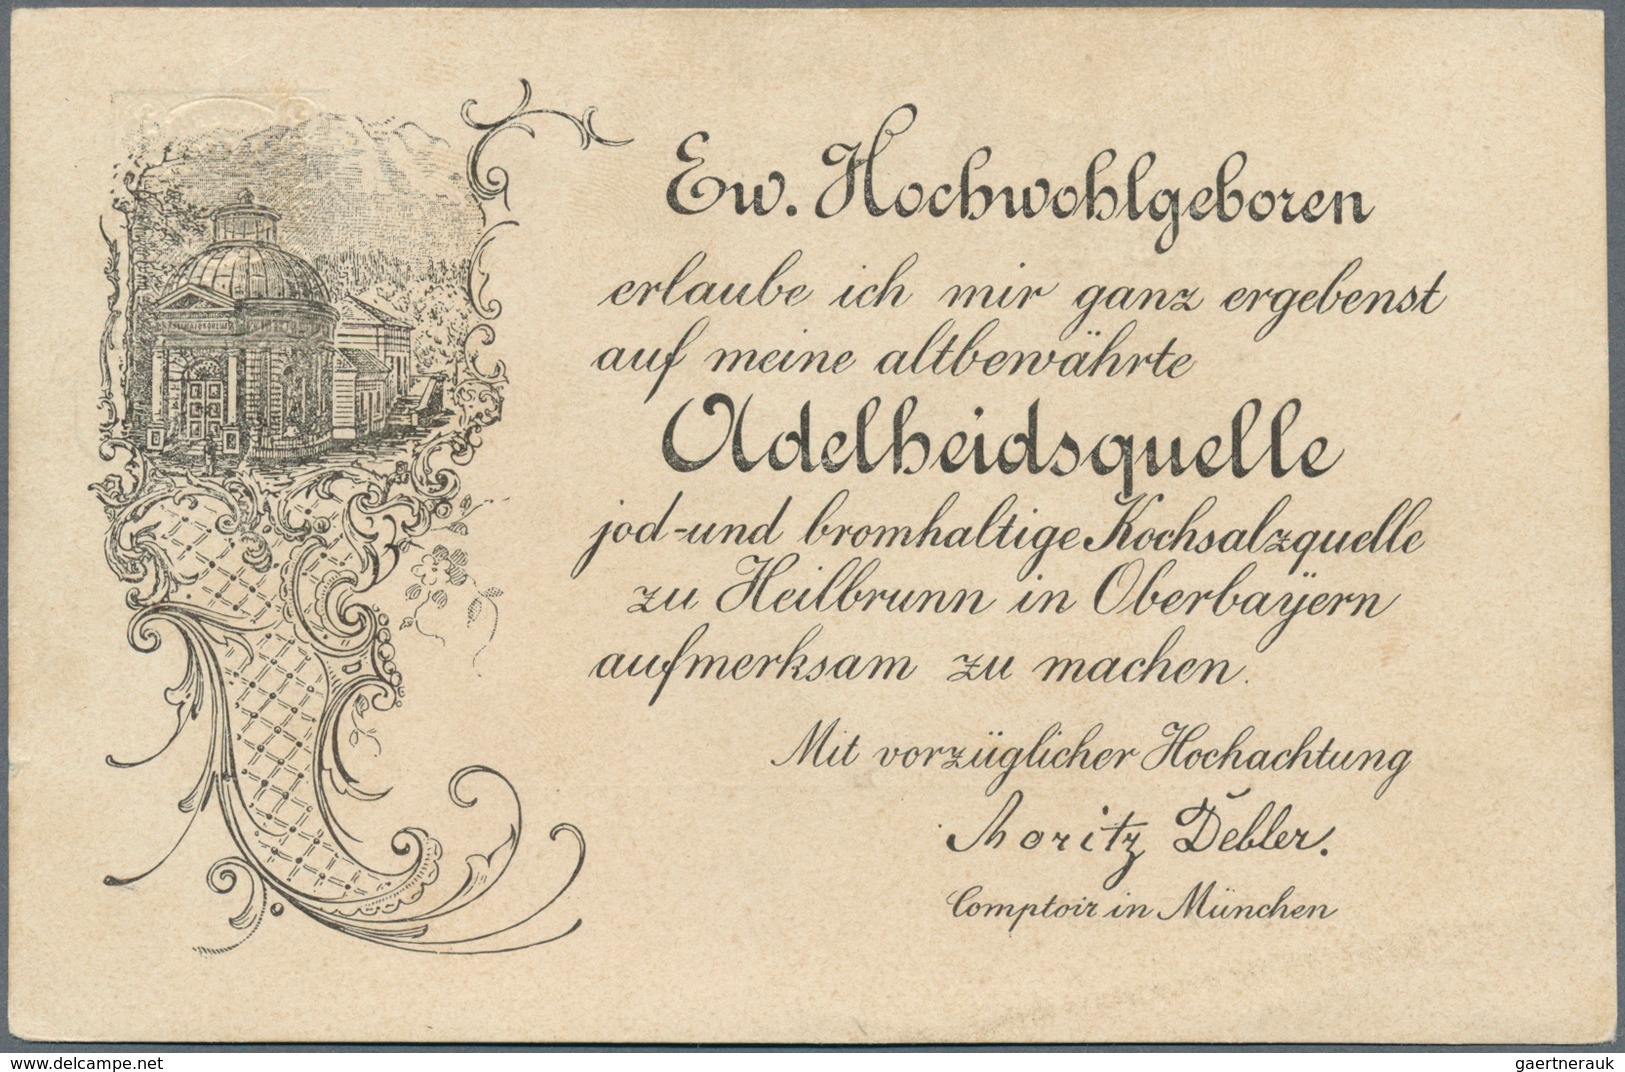 Ew. Hochwohlgeboren
erlaube ich mir ganz ergebenst
auf meine altbewährte
Adelheidsquelle
jod-und bromhaltige Kochsalzquelle
zu Heilbrunn in Oberbayern
aufmerksam zu machen.
Mit vorzüglicher Hochachtung
Moritz Debler.
Comptoir in München
www.delcampe.net
gaertnerauk